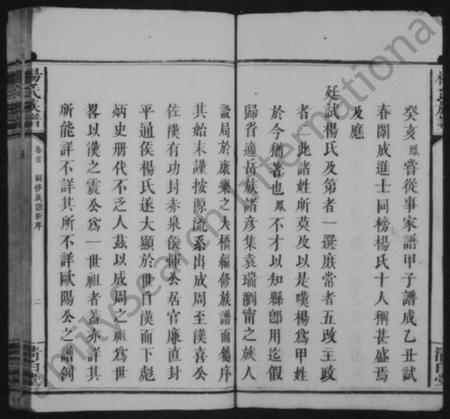 癸亥鳳嘗從事家譜甲子譜成乙丑試
春闈成進士同榜楊氏十人稱甚盛焉
及應
廷試楊氏及第者一選庶常者五改主政
者一此諸姓所莫及以是嘆楊爲甲姓
於今猶者也鳳不才以知縣卽用迄假
歸省適岳族諸彥集袁瑞瀏甯之族人
設局於康樂之大橋編修族譜而屬序
其始末謹按源流系出成周至漢喜公
佐漢有功封赤泉侯公居官廉直封
平通侯楊氏遂大顯於世自漢而下彪
炳史册代不乏人茲以成周之祖爲世
畧以漢之震公爲一世祖者蓋亦詳其
所能詳不詳其所不詳歐陽公之譜例
楊氏族譜
卷首 編修族譜新序 二
清白堂
FamilySearch International